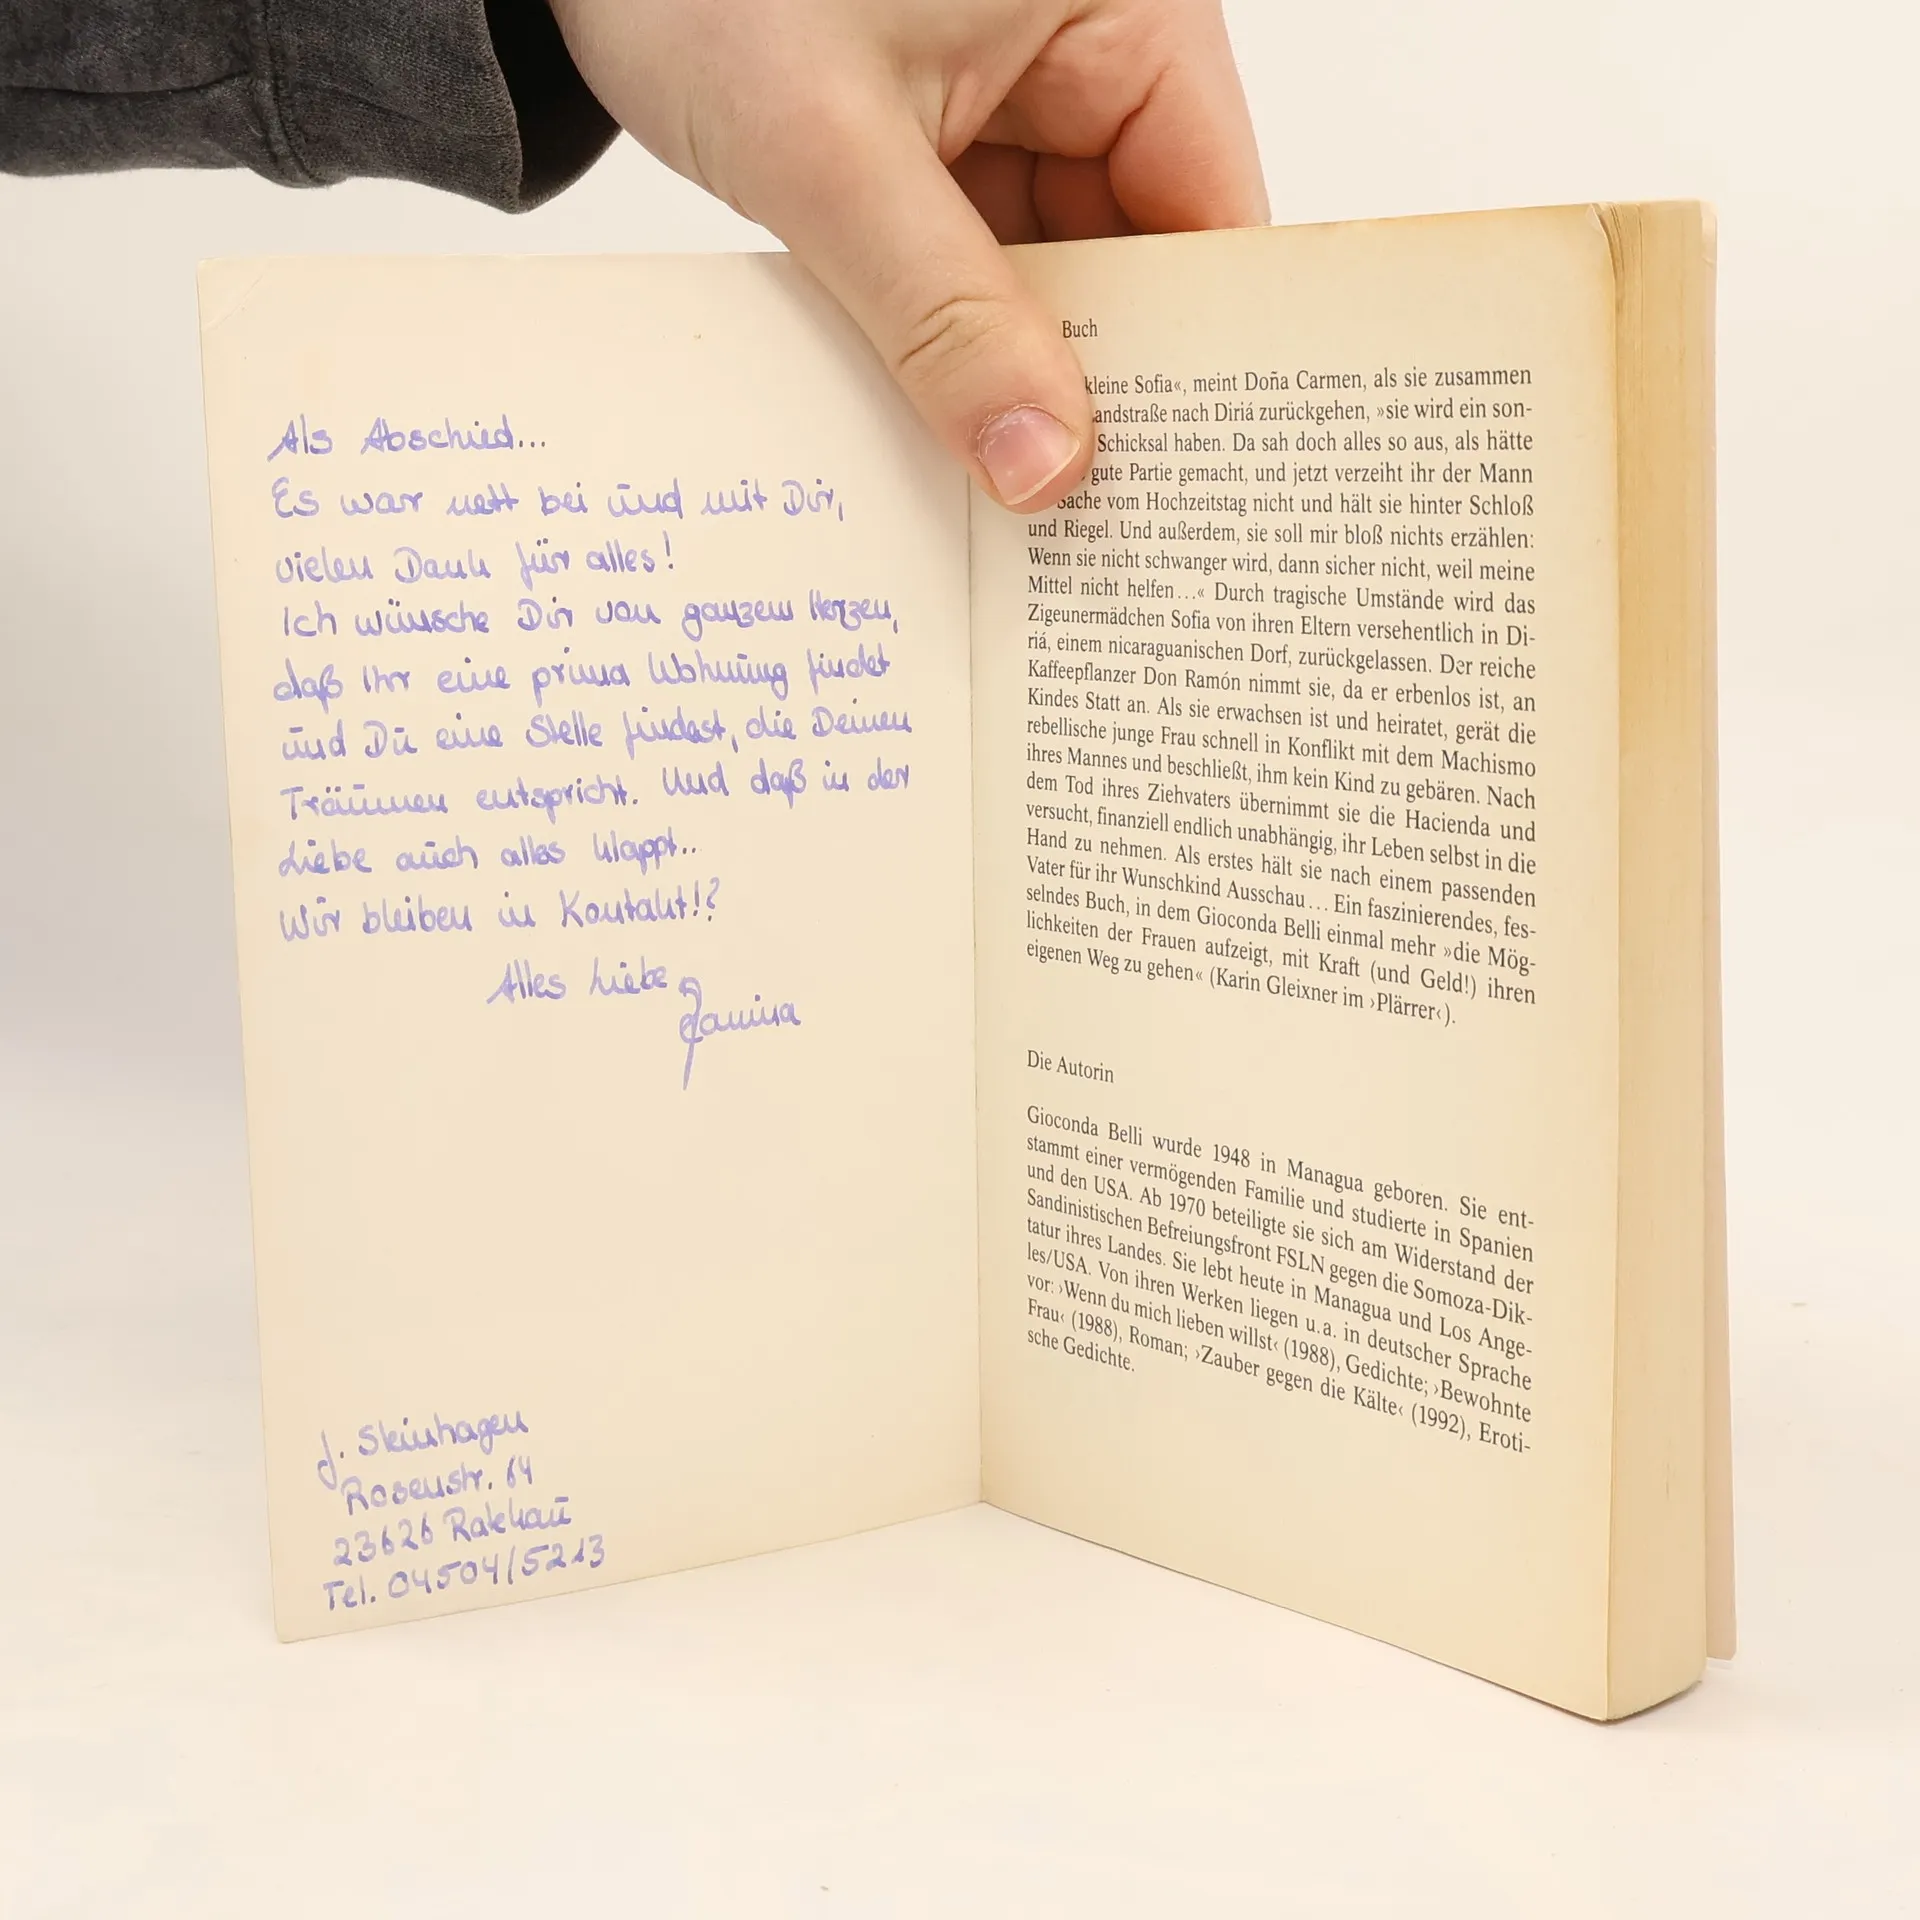 Als Abschied...
Es war nett bei und mit Dir,
vielen Dank für alles!
Ich wünsche Dir von ganzem Herzen,
daß Ihr eine prima Wohnung findet
und Du eine Stelle findest, die Deinen
Träumen entspricht. Und daß in der
Liebe auch alles klappt..
Wir bleiben in Kontakt!?
Alles Liebe
Janina
J. Steinhagen
Rosenstr. 64
23626 Ratekau
Tel. 04504/5213
Buch
kleine Sofia«, meint Doña Carmen, als sie zusammen
andstraße nach Diriá zurückgehen, »sie wird ein son-
Schicksal haben. Da sah doch alles so aus, als hätte
gute Partie gemacht, und jetzt verzeiht ihr der Mann
Sache vom Hochzeitstag nicht und hält sie hinter Schloß
und Riegel. Und außerdem, sie soll mir bloß nichts erzählen:
Wenn sie nicht schwanger wird, dann sicher nicht, weil meine
Mittel nicht helfen...« Durch tragische Umstände wird das
Zigeunermädchen Sofia von ihren Eltern versehentlich in Di-
riá, einem nicaraguanischen Dorf, zurückgelassen. Der reiche
Kaffeepflanzer Don Ramón nimmt sie, da er erbenlos ist, an
Kindes Statt an. Als sie erwachsen ist und heiratet, gerät die
rebellische junge Frau schnell in Konflikt mit dem Machismo
ihres Mannes und beschließt, ihm kein Kind zu gebären. Nach
dem Tod ihres Ziehvaters übernimmt sie die Hacienda und
versucht, finanziell endlich unabhängig, ihr Leben selbst in die
Hand zu nehmen. Als erstes hält sie nach einem passenden
Vater für ihr Wunschkind Ausschau... Ein faszinierendes, fes-
selndes Buch, in dem Gioconda Belli einmal mehr »die Mög-
lichkeiten der Frauen aufzeigt, mit Kraft (und Geld!) ihren
eigenen Weg zu gehen« (Karin Gleixner im ›Plärrer‹).
Die Autorin
Gioconda Belli wurde 1948 in Managua geboren. Sie ent-
stammt einer vermögenden Familie und studierte in Spanien
und den USA. Ab 1970 beteiligte sie sich am Widerstand der
Sandinistischen Befreiungsfront FSLN gegen die Somoza-Dik-
tatur ihres Landes. Sie lebt heute in Managua und Los Ange-
les/USA. Von ihren Werken liegen u.a. in deutscher Sprache
vor: ›Wenn du mich lieben willst‹ (1988), Gedichte; ›Bewohnte
Frau‹ (1988), Roman; ›Zauber gegen die Kälte‹ (1992), Eroti-
sche Gedichte.